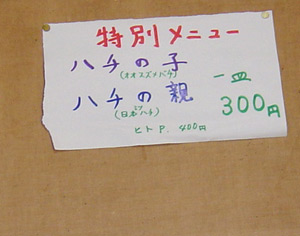 特別メニュー
ハチの子
(オオスズメバチ)
一皿
ハチの親
300円
(日本ハチ)
ヒト P. 400円